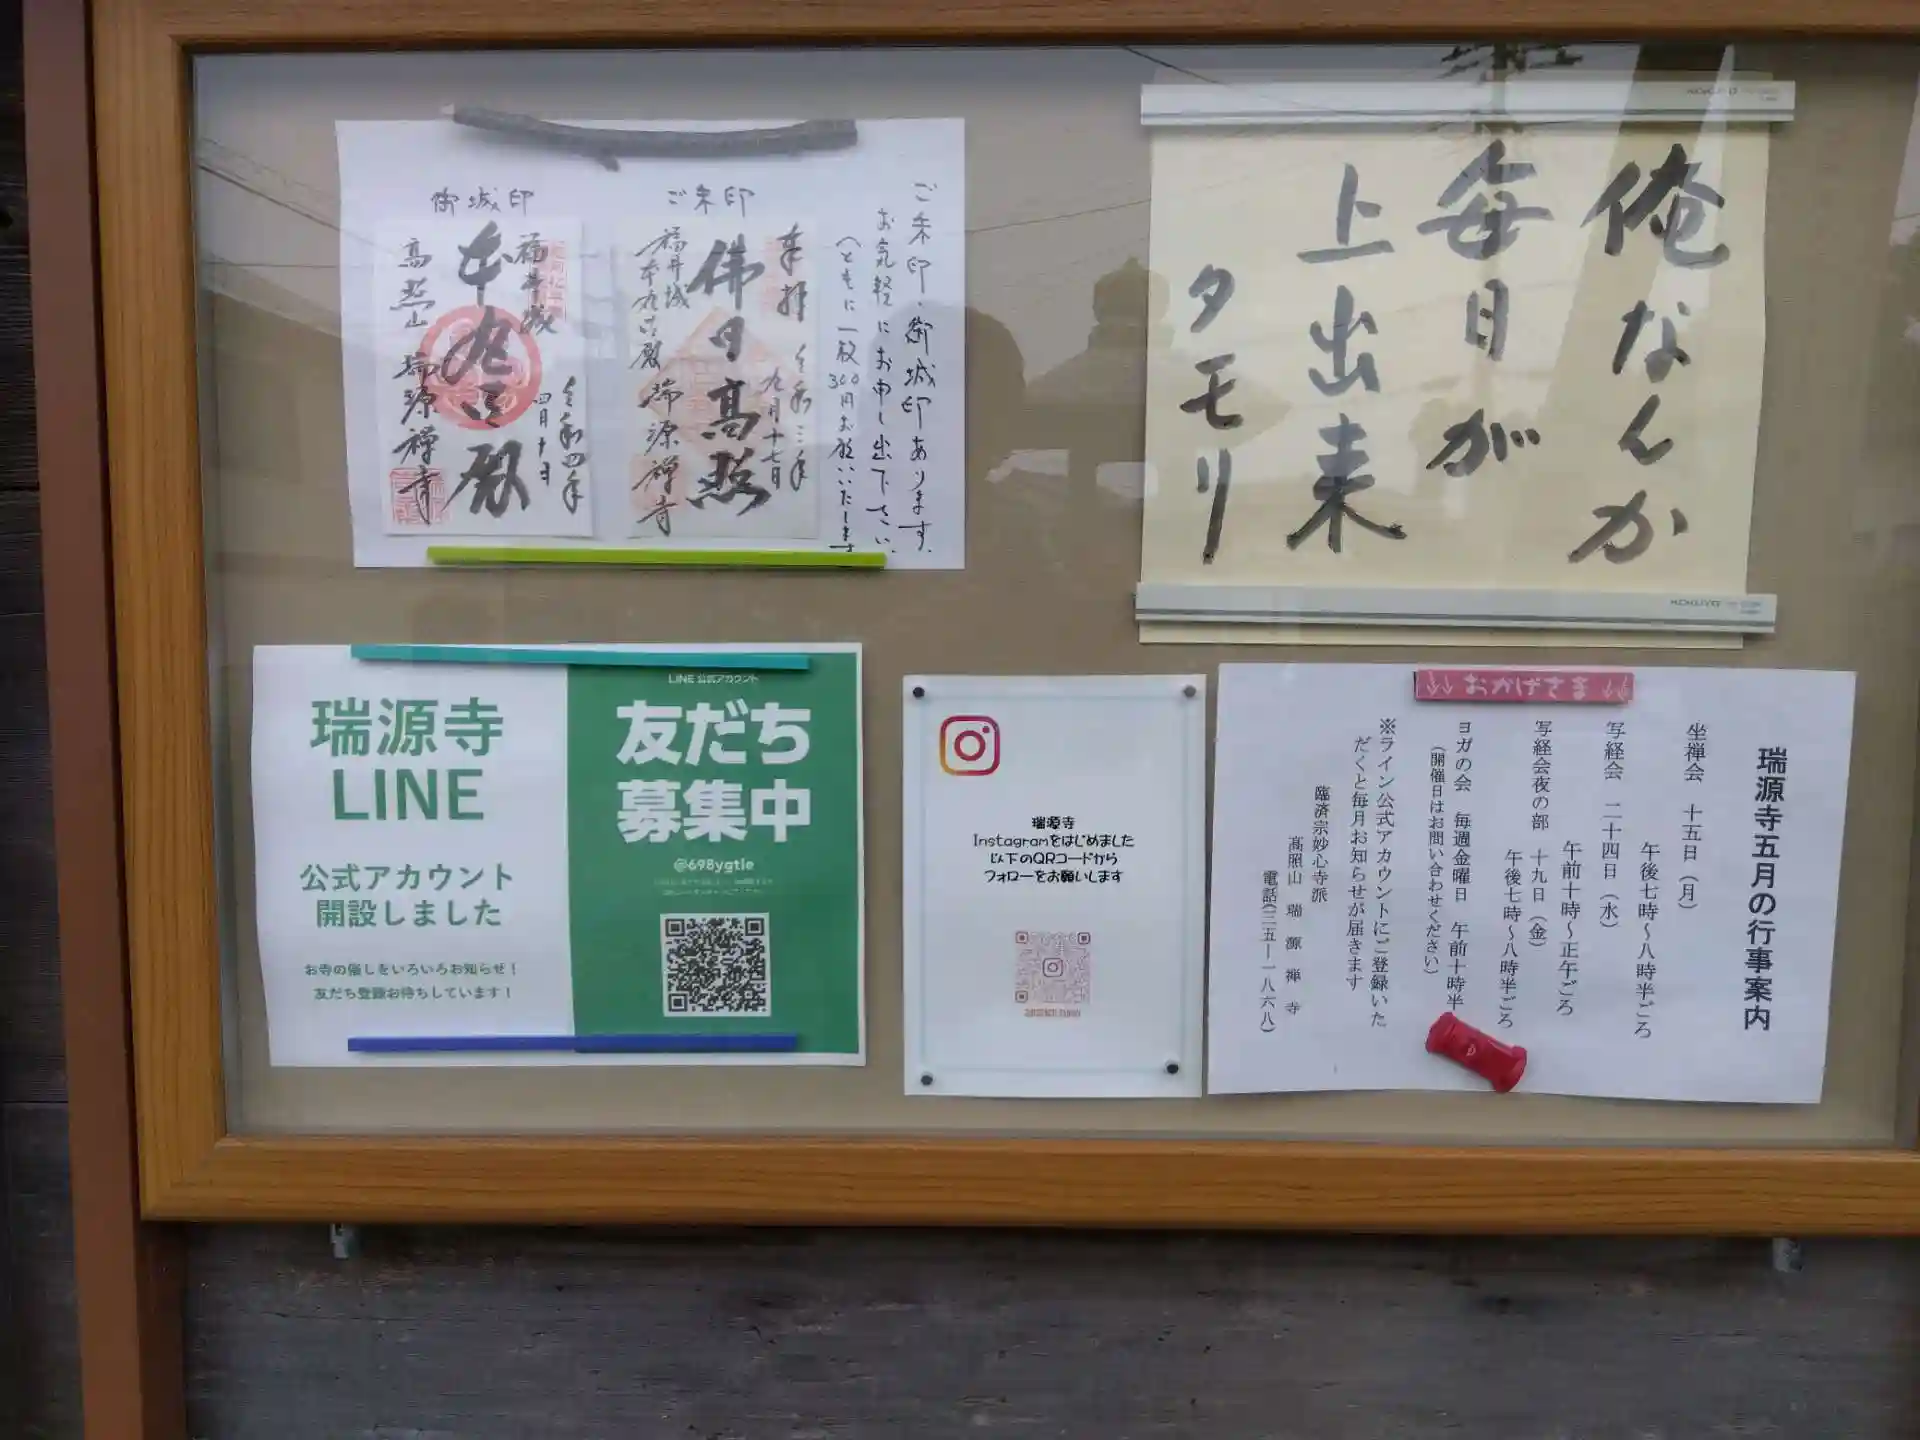 ご朱印・御城印あります。
お気軽にお申し出下さい。
(ともに一枚300円お願いいたします
ご朱印
奉拝
令和三年
九月十七日
佛日高照
福井城
本丸古殿
瑞源禅寺
御城印
福井城
令和四年
四月十日
本丸古殿
高照山 瑞源禅寺
俺なんか
毎日が
上出来
タモリ
KOKUYO
瑞源寺
LINE
公式アカウント
開設しました
お寺の催しをいろいろお知らせ!
友だち登録お待ちしています!
LINE 公式アカウント
友だち
募集中
@698ygtle
瑞源寺
Instagramをはじめました
以下のQRコードから
フォローをお願いします
おかげさま
瑞源寺五月の行事案内
坐禅会 十五日(月)
午後七時〜八時半ごろ
写経会 二十四日(水)
午前十時〜正午ごろ
写経会夜の部 十九日(金)
午後七時〜八時半ごろ
ヨガの会 毎週金曜日 午前十時半
(開催日はお問い合わせください)
※ライン公式アカウントにご登録いた
だくと毎月お知らせが届きます
臨済宗妙心寺派
高照山 瑞源禅寺
電話(三五ー一八六八)